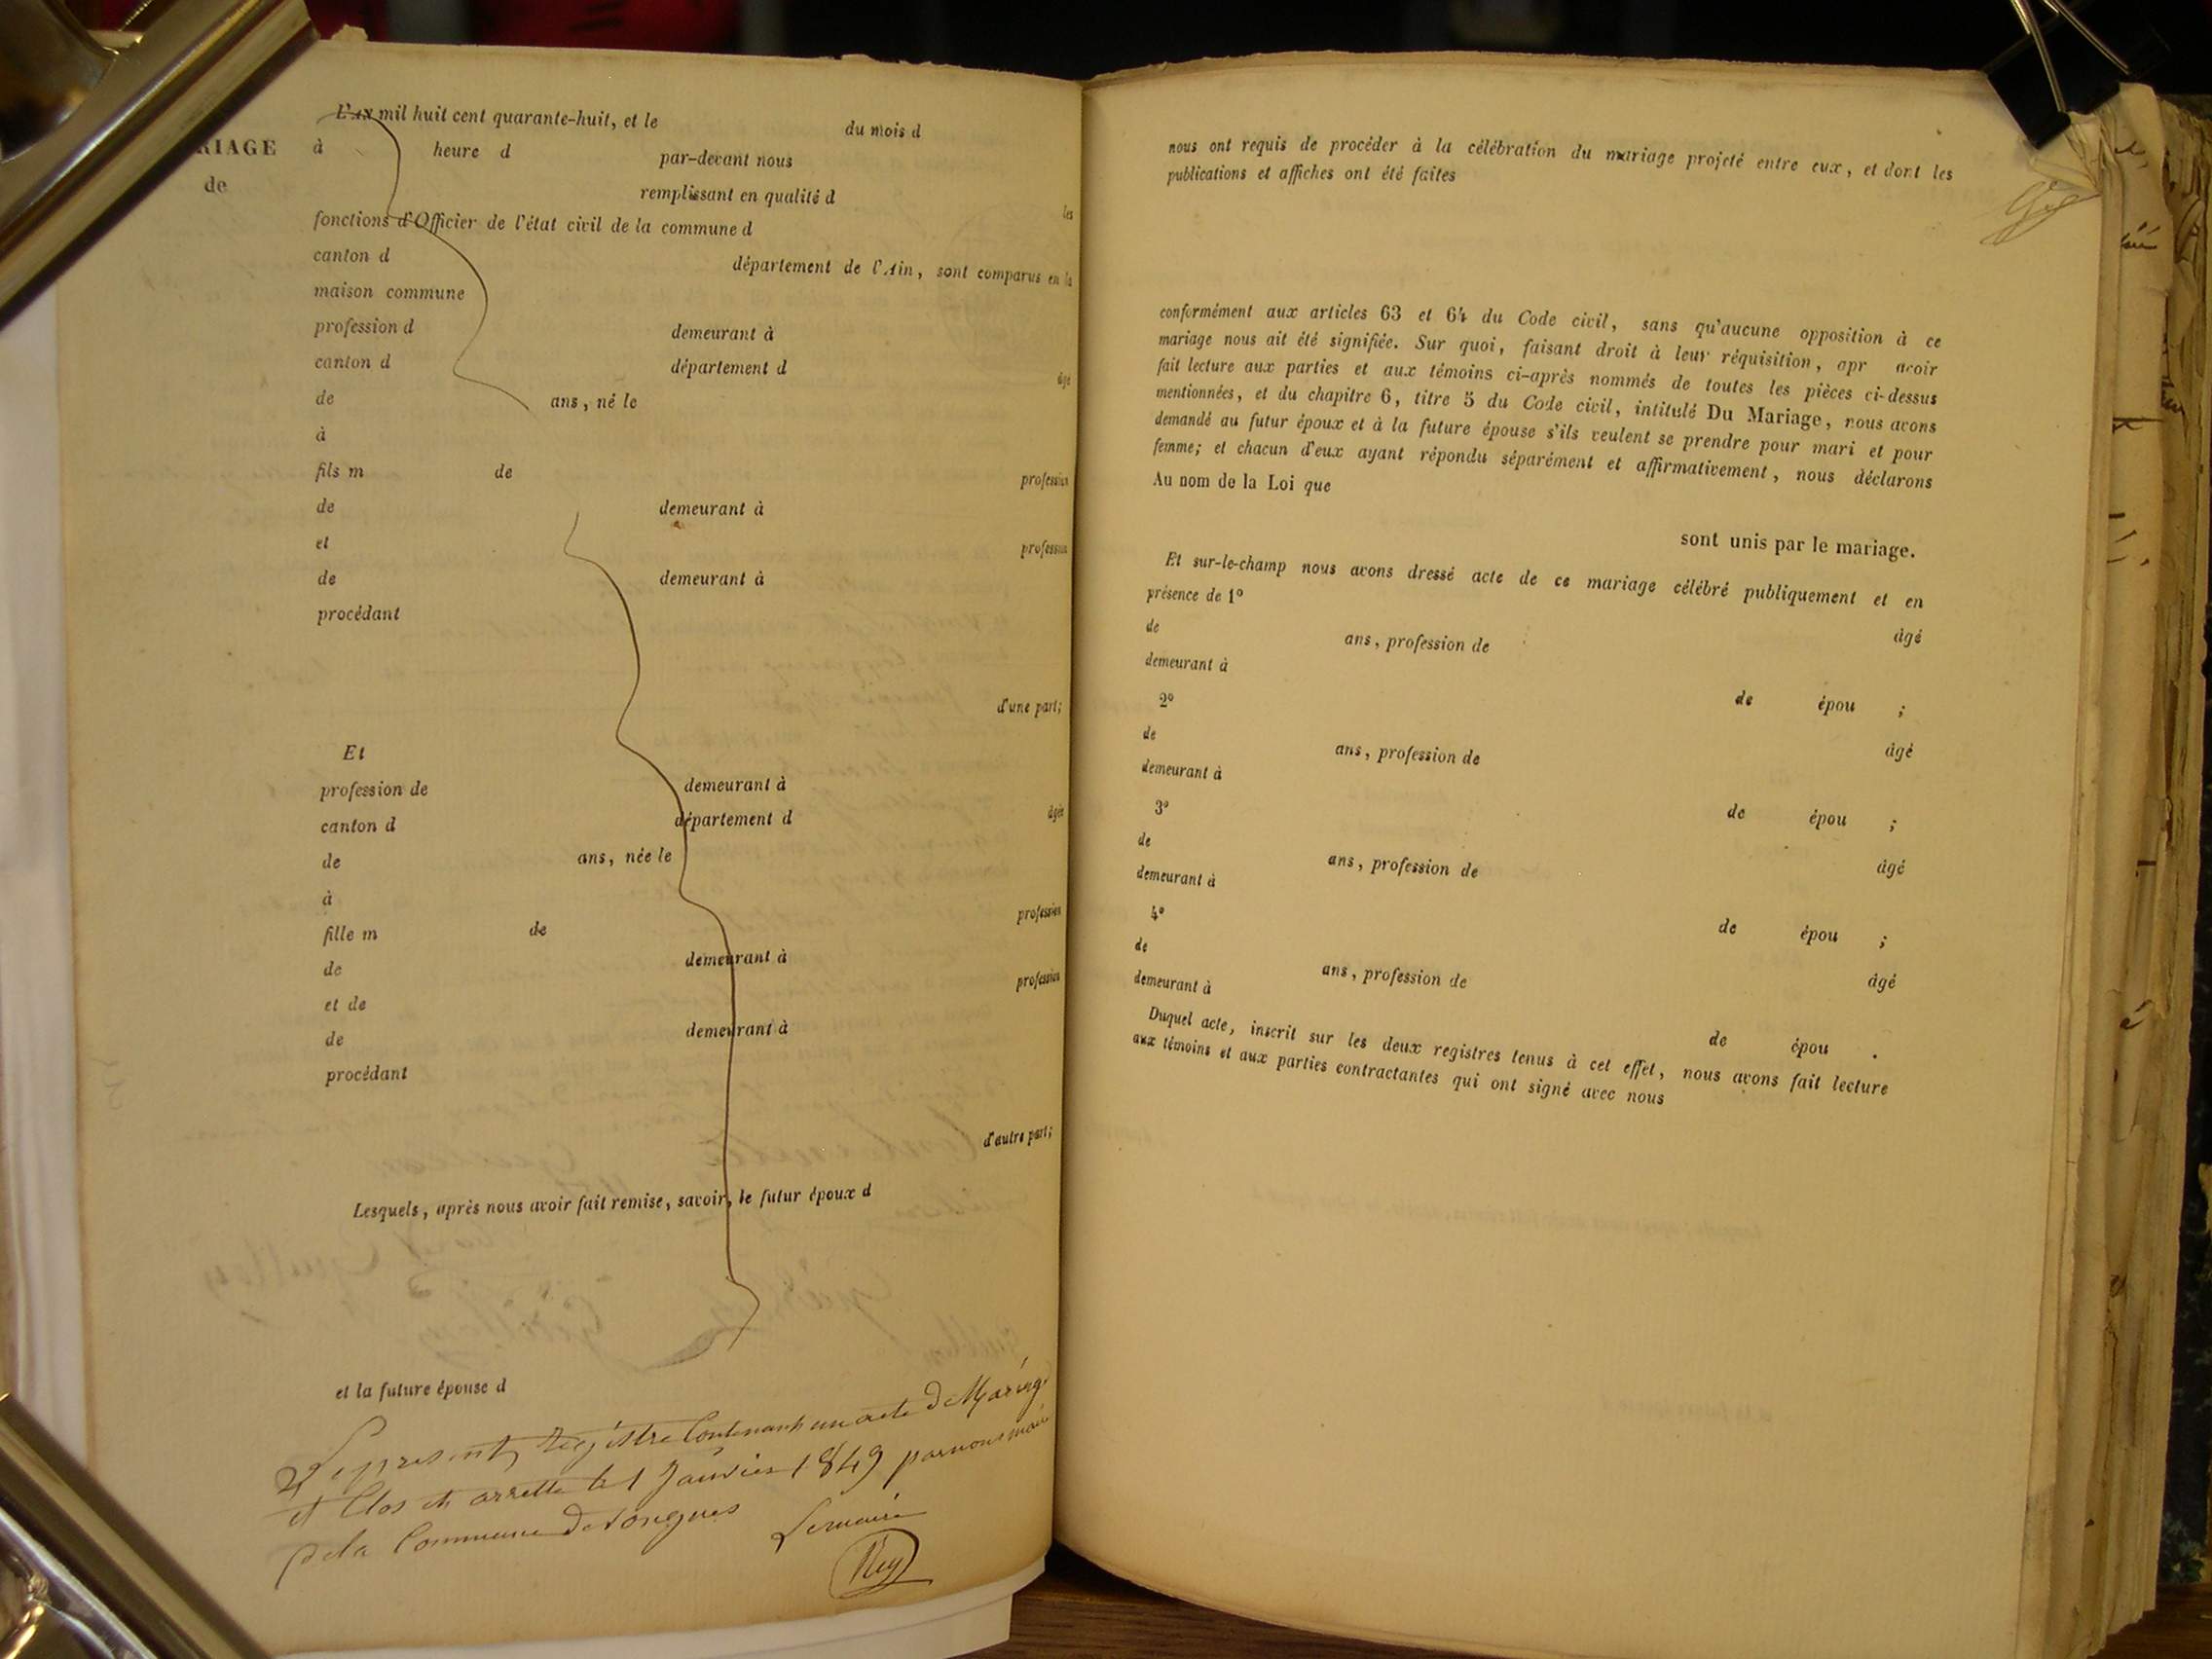 L'an mil huit cent quarante-huit, et le du mois d
RIAGE à heure d par-devant nous
de
remplissant en qualité d les
fonctions d'Officier de l'état civil de la commune d
canton d département de l'Ain, sont comparus en la
maison commune
profession d demeurant à
canton d département d âgé
de ans, né le
à
fils m de profession
de demeurant à
et profession
de demeurant à
procédant
d'une part;
Et
profession de demeurant à
canton d département d âgée
de ans, née le
à
fille m de profession
de demeurant à
et de profession
de demeurant à
procédant
d'autre part;
Lesquels, après nous avoir fait remise, savoir, le futur époux d
et la future épouse d
Le present Registre Contenant un acte De Mariage
et Clos et arretté le 1 Janvier 1849 par nous maire
de la Commune De Songues Le maire
Rey
nous ont requis de procéder à la célébration du mariage projeté entre eux, et dont les
publications et affiches ont été faites
conformément aux articles 63 et 64 du Code civil, sans qu'aucune opposition à ce
mariage nous ait été signifiée. Sur quoi, faisant droit à leur réquisition, apr avoir
fait lecture aux parties et aux témoins ci-après nommés de toutes les pièces ci-dessus
mentionnées, et du chapitre 6, titre 5 du Code civil, intitulé Du Mariage, nous avons
demandé au futur époux et à la future épouse s'ils veulent se prendre pour mari et pour
femme; et chacun d'eux ayant répondu séparément et affirmativement, nous déclarons
Au nom de la Loi que
sont unis par le mariage.
Et sur-le-champ nous avons dressé acte de ce mariage célébré publiquement et en
présence de 1º
âgé
de ans, profession de
demeurant à
de épou ;
2º
âgé
de ans, profession de
demeurant à
de épou ;
3º
âgé
de ans, profession de
demeurant à
de épou ;
4º
âgé
de ans, profession de
demeurant à
de épou .
Duquel acte, inscrit sur les deux registres tenus à cet effet, nous avons fait lecture
aux témoins et aux parties contractantes qui ont signé avec nous